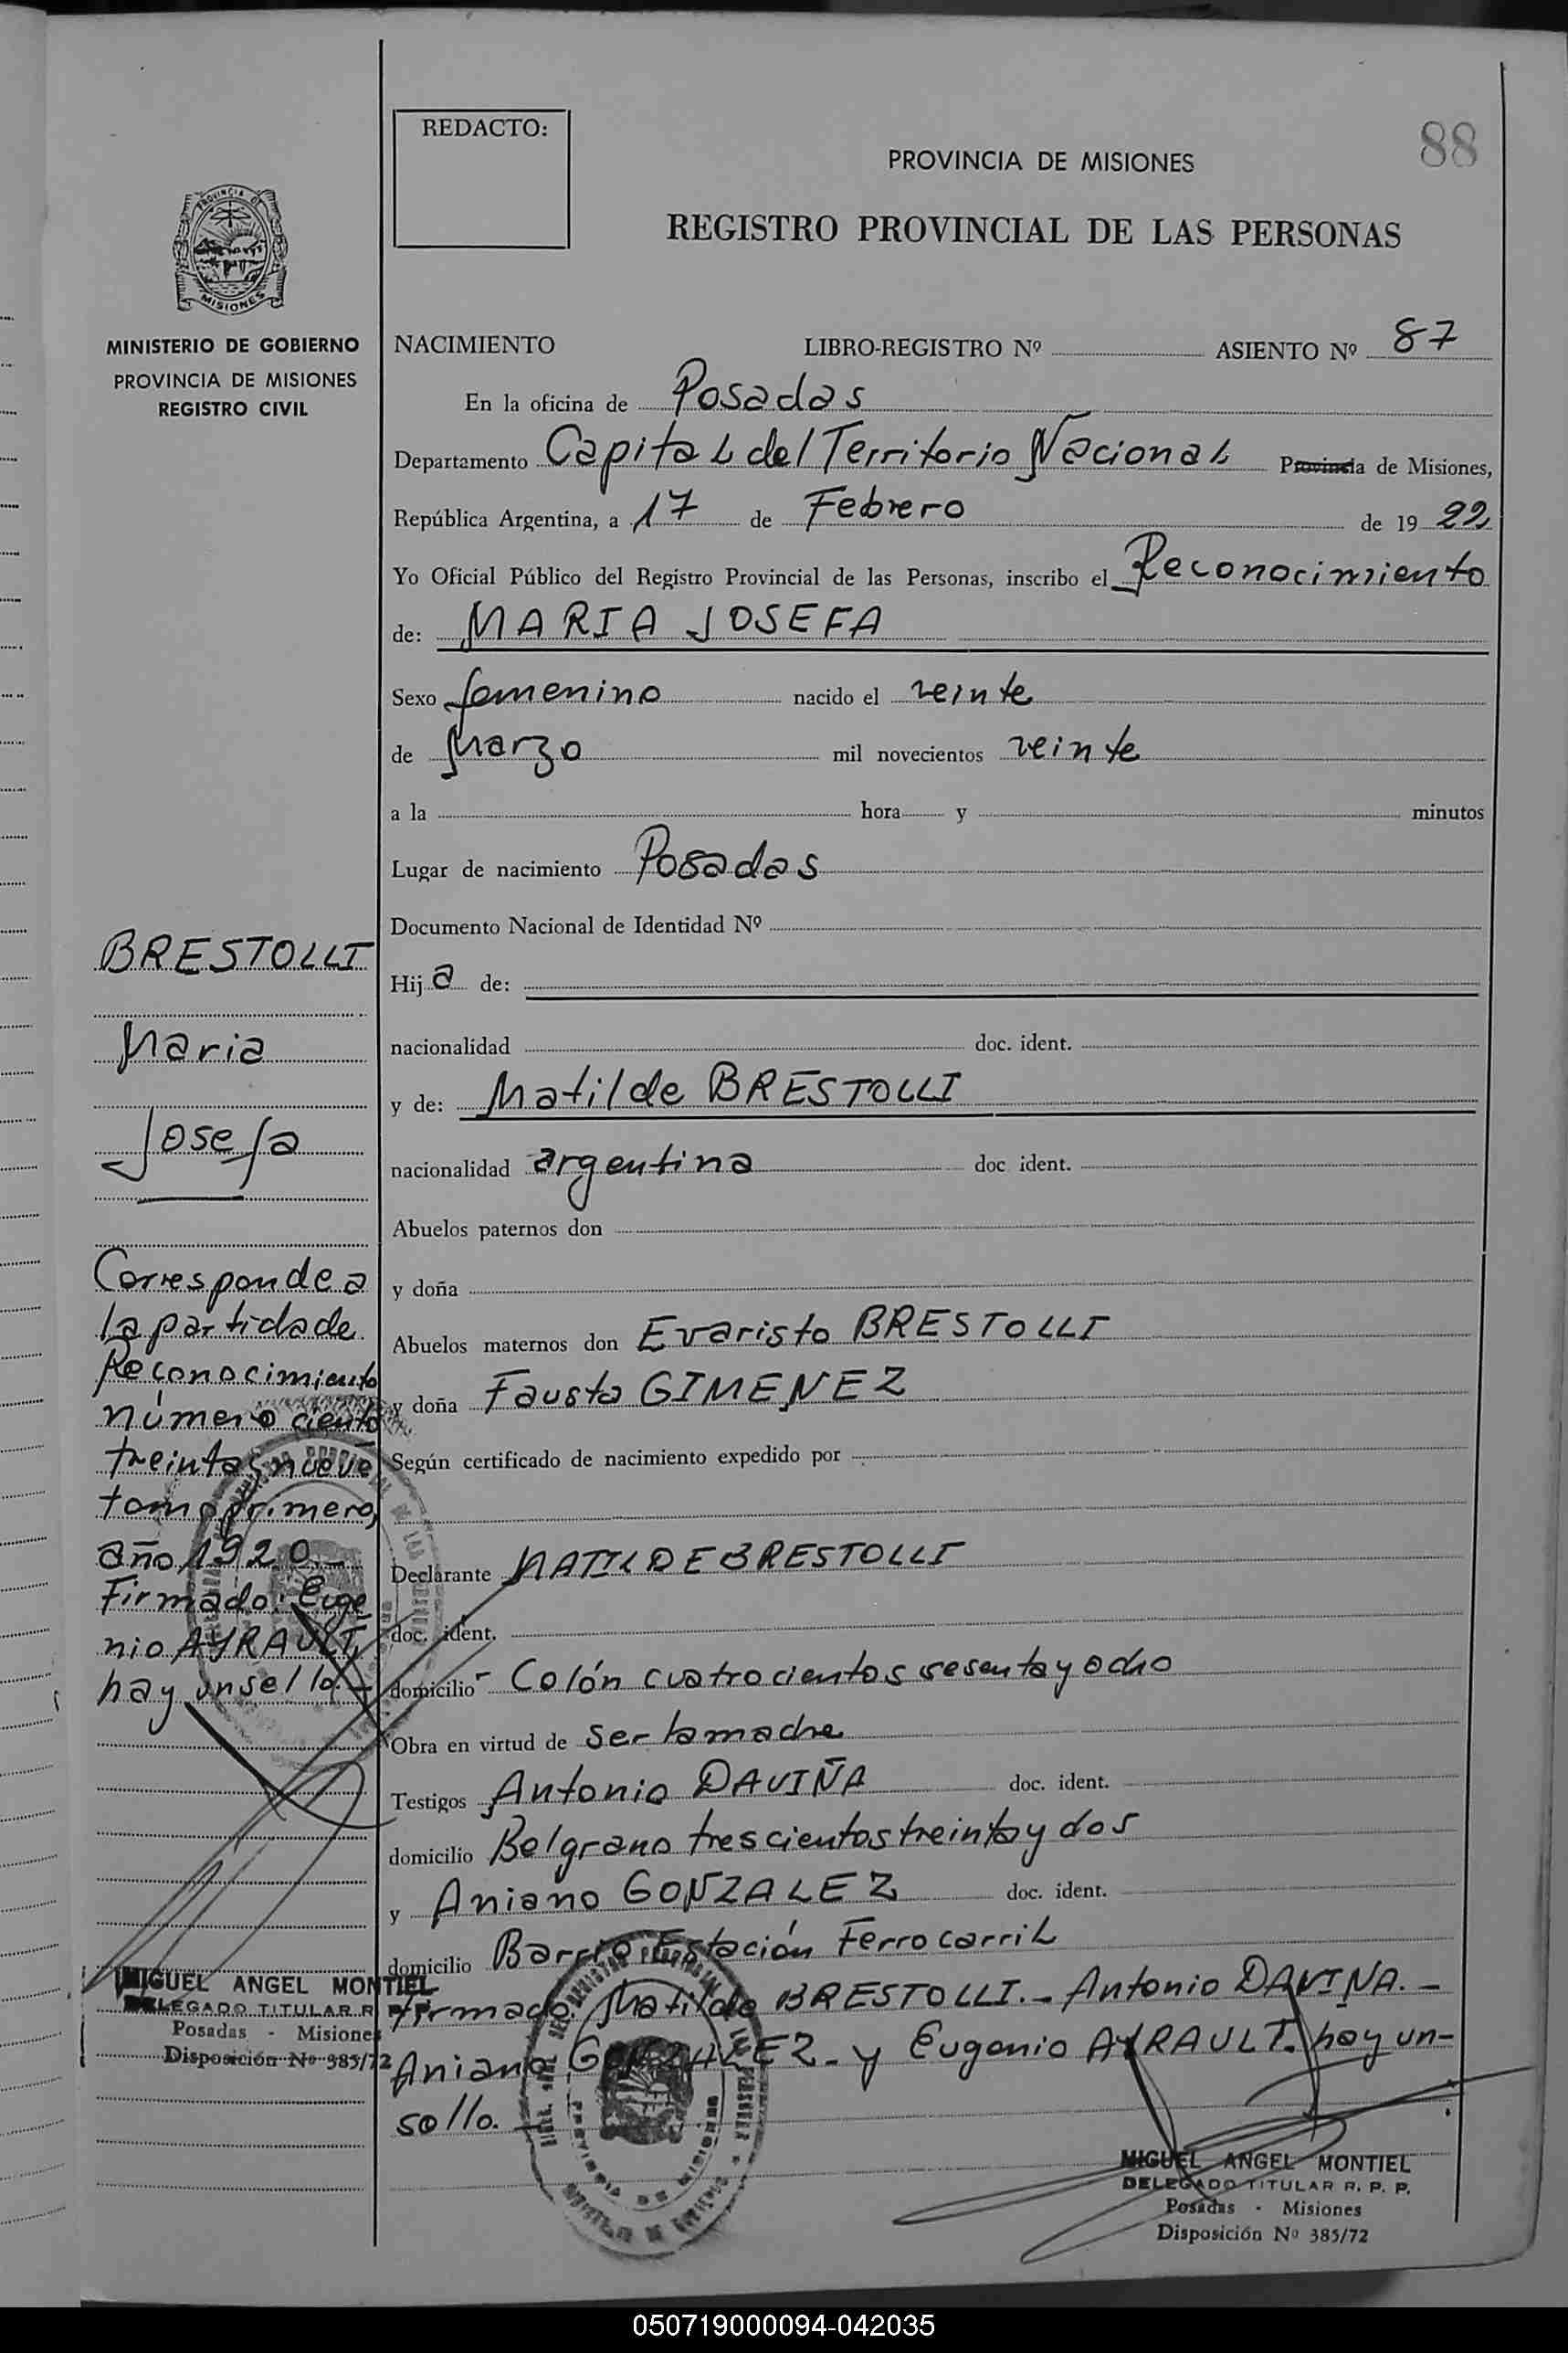 REDACTO:
PROVINCIA DE MISIONES
88
REGISTRO PROVINCIAL DE LAS PERSONAS
PROVINCIA DE
MISIONES
MINISTERIO DE GOBIERNO
PROVINCIA DE MISIONES
REGISTRO CIVIL
NACIMIENTO LIBRO-REGISTRO Nº ASIENTO Nº 87
En la oficina de Posadas
Departamento Capital del Territorio Nacional Provincia de Misiones,
República Argentina, a 17 de Febrero de 19 22
Yo Oficial Público del Registro Provincial de las Personas, inscribo el Reconocimiento
de: MARIA JOSEFA
Sexo femenino nacido el veinte
de Marzo mil novecientos veinte
a la hora y minutos
Lugar de nacimiento Posadas
Documento Nacional de Identidad Nº
Hij a de:
nacionalidad doc. ident.
y de: Matilde BRESTOLLI
nacionalidad argentina doc ident.
Abuelos paternos don
y doña
Abuelos maternos don Evaristo BRESTOLLI
y doña Fausta GIMENEZ
Según certificado de nacimiento expedido por
Declarante MATILDE BRESTOLLI
doc. ident.
domicilio - Colón cuatrocientos sesenta y ocho
Obra en virtud de ser la madre
Testigos Antonio DAVIÑA doc. ident.
domicilio Belgrano trescientos treinta y dos
y Aniano GONZALEZ doc. ident.
domicilio Barrio Estación Ferrocarril
Firmado: Matilde BRESTOLLI.- Antonio DAVIÑA.-
Aniano GONZALEZ.- y Eugenio AYRAULT. hay un-
sello.-
MIGUEL ANGEL MONTIEL
DELEGADO TITULAR R. P. P.
Posadas - Misiones
Disposición Nº 385/72
BRESTOLLI
Maria
Josefa
Corresponde a
la partida de
Reconocimiento
número ciento
treinta y nueve
tomo primero,
año 1920.-
Firmado: Euge
nio AYRAULT,
hay un sello.-
MIGUEL ANGEL MONTIEL
DELEGADO TITULAR R. P. P.
Posadas - Misiones
Disposición Nº 385/72
050719000094-042035